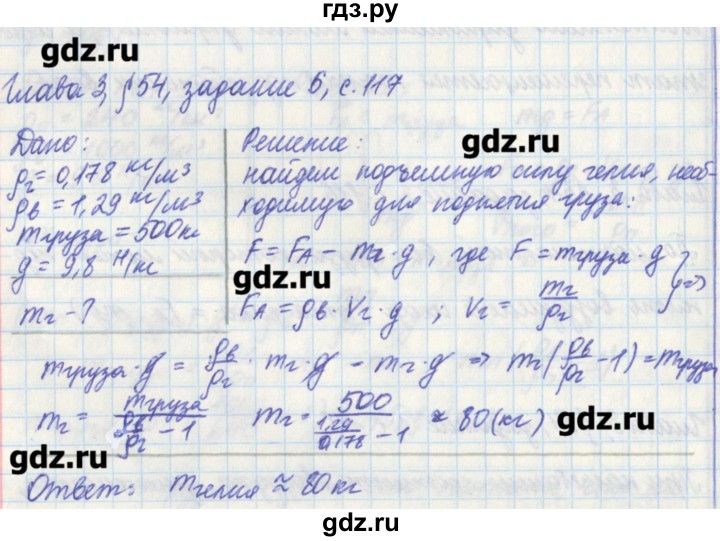 гдз.ру
gdz.ru
Глава 3, § 54, задание 6, с. 117
Дано:
ρг = 0,178 кг/м³
ρв = 1,29 кг/м³
mгруза = 500кг
g = 9,8 Н/кг
mг - ?
Решение:
gdz.ru
найдем подъемную силу гелия, необ-
ходимую для поднятия груза:
F = FA - mг · g , где F = mгруза · g } =>
gdz.ru
FA = ρв · Vг · g ; Vг = mг/ρг
mгруза · g = ρв/ρг · mг · g - mг · g => mг (ρв/ρг - 1) = mгруза
mг = mгруза/(ρв/ρг - 1) mг = 500/(1,29/0,178 - 1) ≈ 80 (кг)
gdz.ru
gdz.ru
Ответ: mгелия ≈ 80 кг
gdz.ru